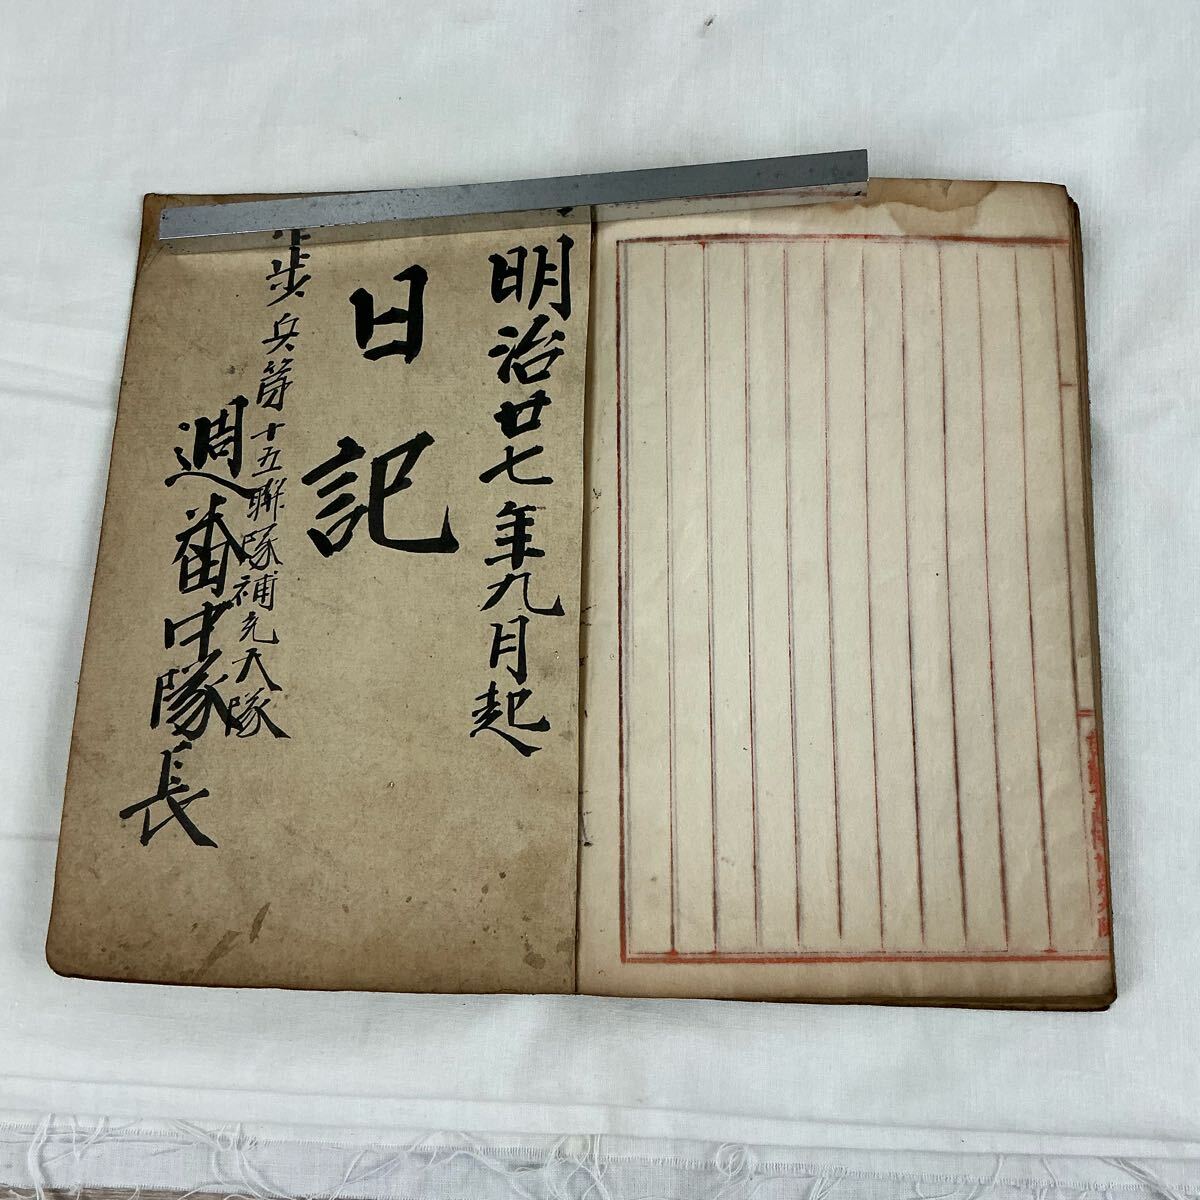 明治廿七年九月起
日記
歩兵第十五聯隊補充大隊
週番中隊長